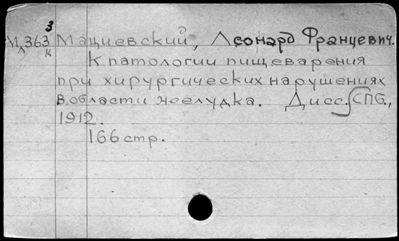 3
М,363 Мациевский, Леонард Францевич.
к К патологии пищеварения
при хирургических нарушениях
в области желудка. Дисс. СПб.,
1912.
166 стр.